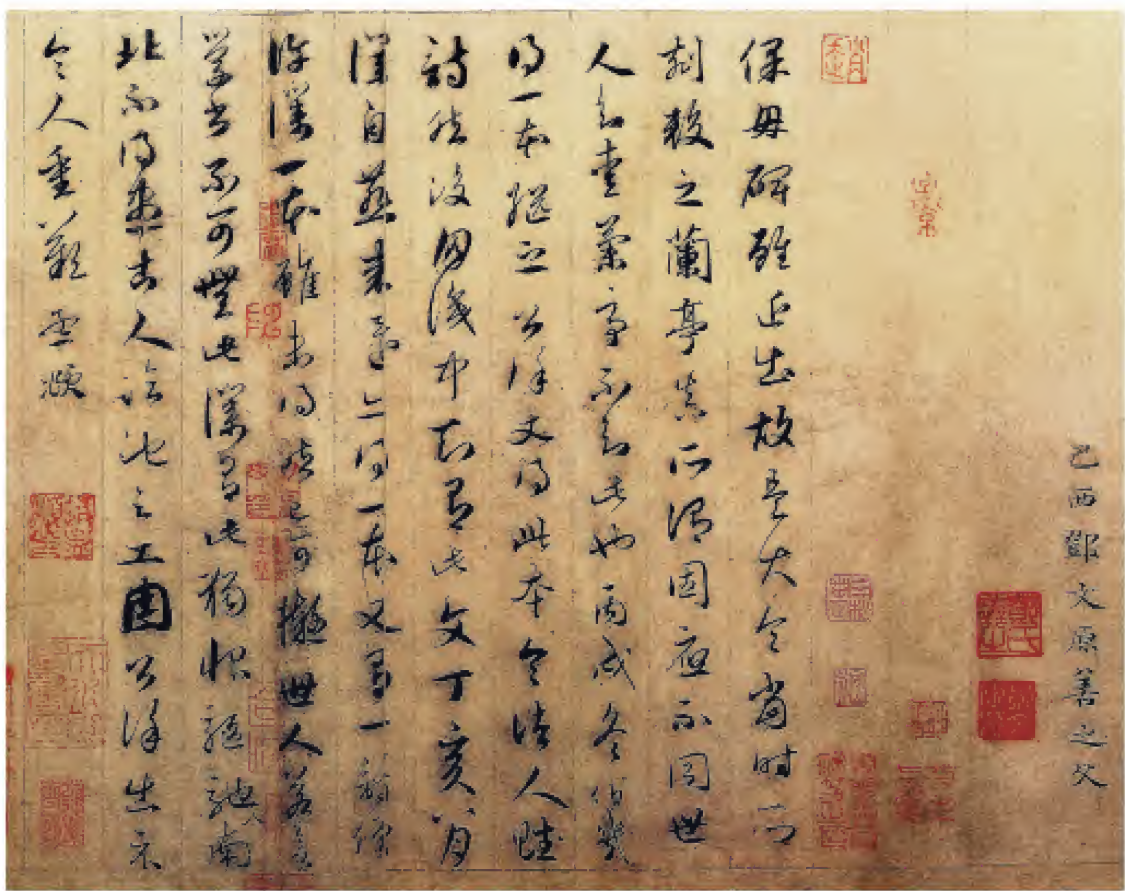 己酉鄧文原善之父
保母碑雖近出故是大令當時所
刻較之蘭亭真所謂因應不同世
人知愛蘭亭不知此也丙戌冬伯幾
得一本繼之公謹丈得此本令諸人賦
詩然後朋識中知有此文丁亥八月
僕自燕來還亦得一本又有一詩僧
許僕一本雖未得然已可擬世人若欲
學書不可無此僕有此獨恨驅馳南
北不得盡古人臨池之工因公謹出示
令人重歎孟頫